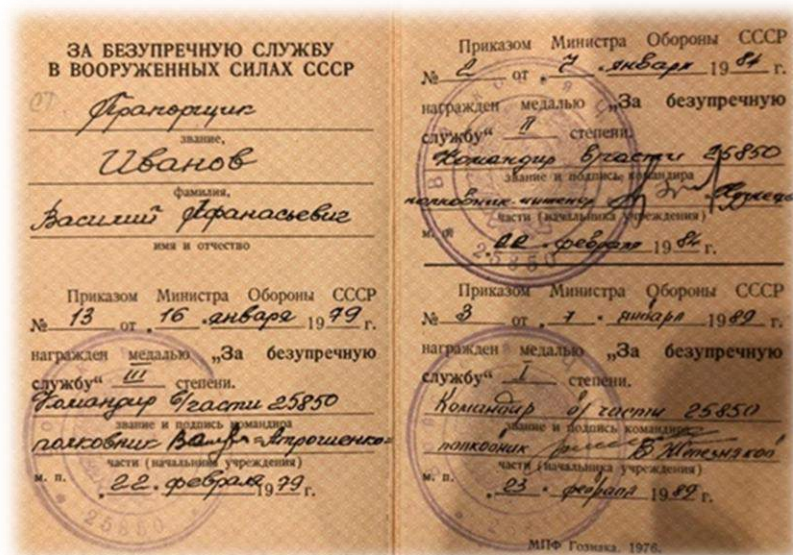 ЗА БЕЗУПРЕЧНУЮ СЛУЖБУ
В ВООРУЖЕННЫХ СИЛАХ СССР
СТ
Прапорщик
звание,
Иванов
фамилия,
Василий Афанасьевич
имя и отчество
Приказом Министра Обороны СССР
№ 13 от „ 16 „ января 1979 г.
награжден медалью „За безупречную
службу“ III степени.
Командир в/части 25850
звание и подпись командира
полковник Атрошенко
части (начальника учреждения)
м. п. „ 22 „ февраля 1979 г.
25850
Приказом Министра Обороны СССР
№ 2 от „ 7 „ января 1984 г.
награжден медалью „За безупречную
службу“ II степени.
Командир в/части 25850
звание и подпись командира
полковник-инженер
части (начальника учреждения)
м. п. „ 22 „ февраля 1984 г.
25850
Приказом Министра Обороны СССР
№ 3 от „ 7 „ января 1989 г.
награжден медалью „За безупречную
службу“ I степени.
Командир в/части 25850
звание и подпись командира
полковник
части (начальника учреждения)
м. п. „ 23 „ февраля 1989 г.
МПФ Гознака. 1976.